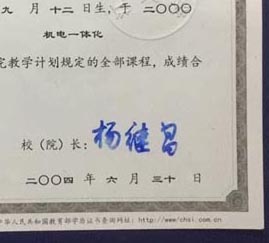 九 月 十二 日生，于 二〇〇〇
机电一体化
完教学计划规定的全部课程，成绩合
校（院）长： 杨继昌
二〇〇四 年 六 月 三十 日
中华人民共和国教育部学历证书查询网址：http://www.chsi.com.cn